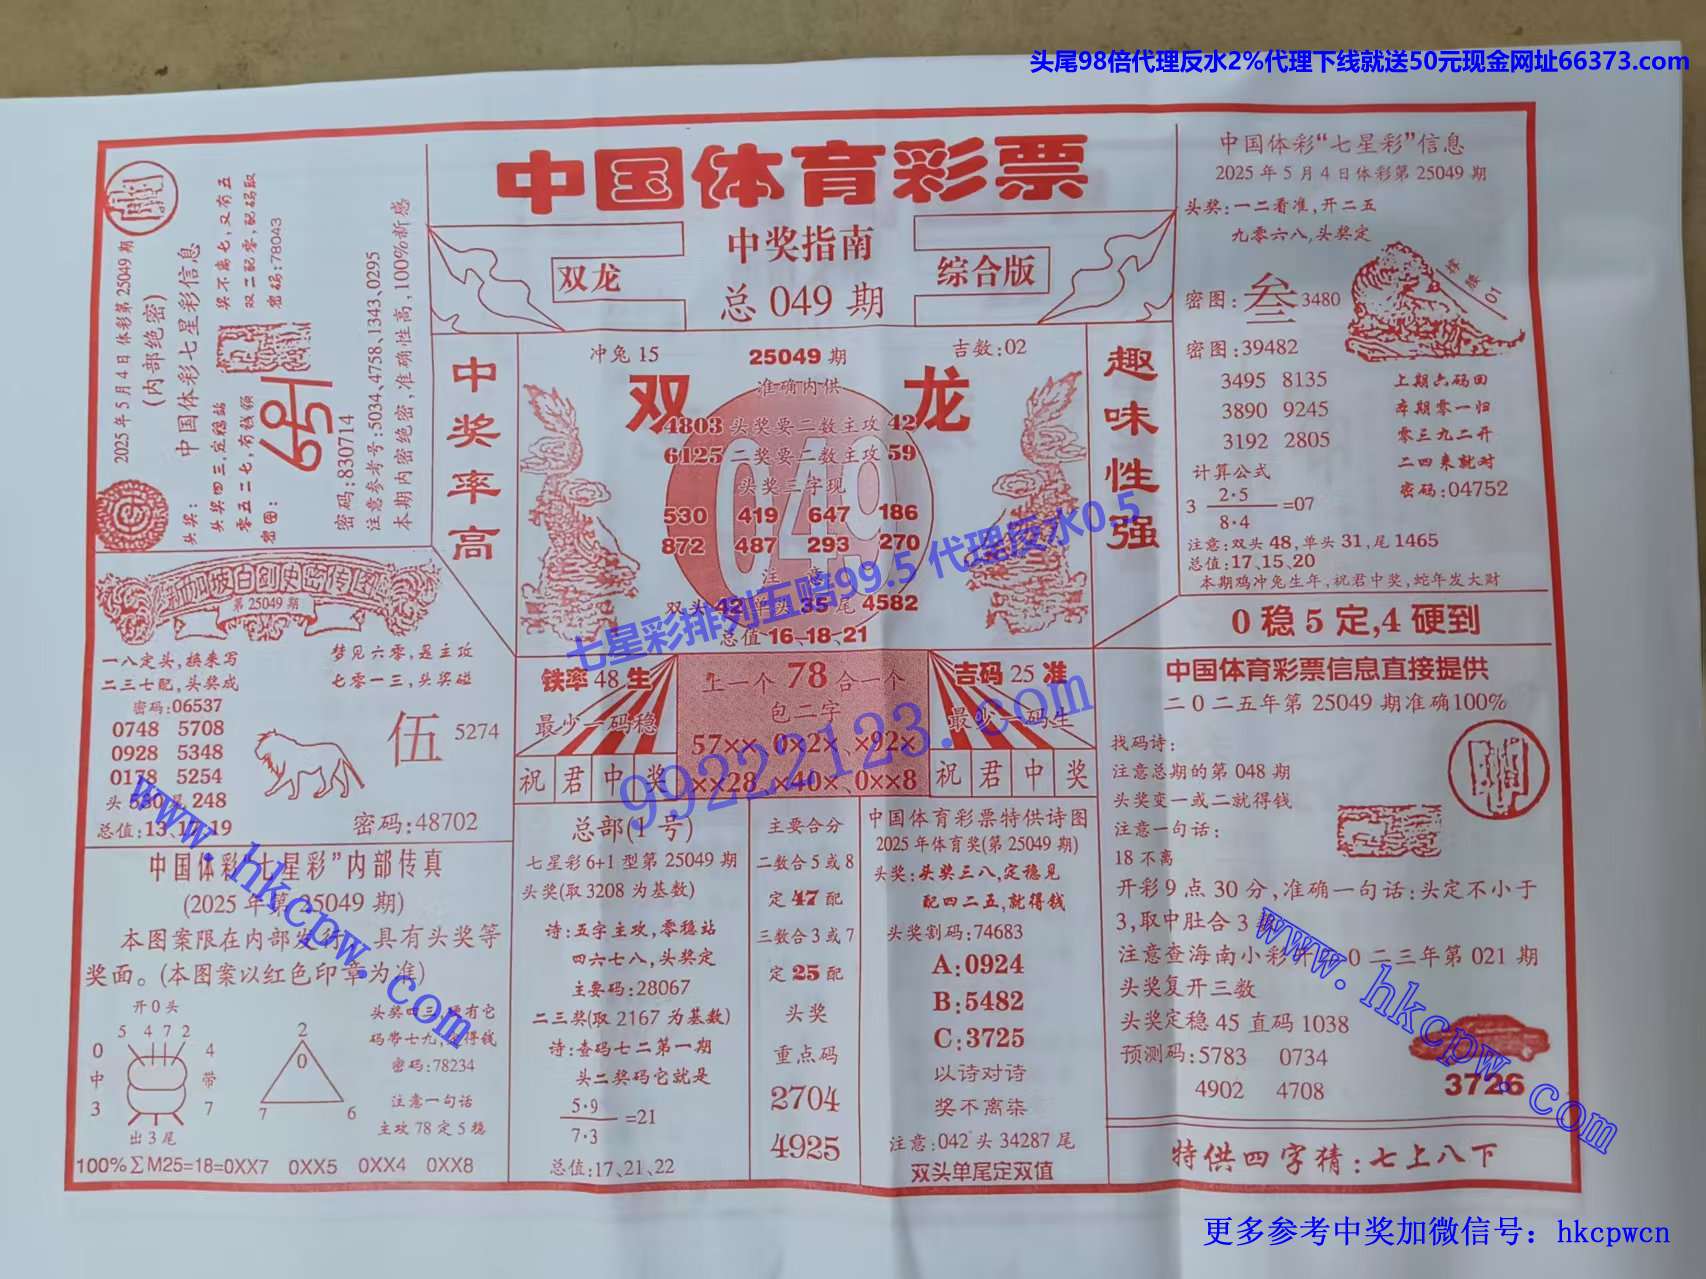 头尾98倍代理反水2%代理下线就送50元现金网址66373.com
2025年5月4日 体彩第25049期
(内部绝密)
中国体彩七星彩信息
头奖:
头奖四三,定稳站
零五二七,有钱领
密图:
奖不离七,又有五
双二配零,配码取
密码:78043
密码:830714
注意参考号:5034、4758、1343、0295
本期内密绝密,准确性高,100%新感
中国体育彩票
双龙
中奖指南
总 049 期
综合版
中奖率高
冲兔 15
25049 期
吉数:02
双
准确内供
龙
4803 头奖要二数主攻 42
6125 二奖要二数主攻 59
头奖三字现
049
530 419 647 186
872 487 293 270
注 意
双头 42 单头 35 尾 4582
总值 16、18、21
趣味性强
中国体彩“七星彩”信息
2025年5月4日体彩第25049期
头奖:一二看准,开二五
九零六八,头奖定
密图: 叁 3480
密图:39482
3495 8135
3890 9245
3192 2805
上期六码回
本期零一归
零三九二开
二四来就对
密码:04752
计算公式
3 2·5
8·4 =07
注意:双头 48,单头 31,尾 1465
总值:17、15、20
本期鸡冲兔生年,祝君中奖,蛇年发大财
0 稳 5 定,4 硬到
新加坡白剑史密传图
第 25049 期
一八定头,换来写
二三七配,头奖成
密码:06537
梦见六零,是主攻
七零一三,头奖碰
0748 5708
0928 5348
0178 5254
头 530 尾 248
总值:13、17、19
伍 5274
密码:48702
铁率 48 生
最少一码稳
祝君中奖
上一个 78 合一个
包二字
57×× 0×2×、×92×
××28、×40×、0××8
吉码 25 准
最少一码生
祝君中奖
中国体育彩票信息直接提供
二0二五年第 25049 期准确100%
找码诗:
注意总期的第 048 期
头奖变一或二就得钱
注意一句话:
18 不离
开彩 9 点 30 分,准确一句话:头定不小于
3,取中肚合 3
注意查海南小彩 0 二三年第 021 期
头奖复开三数
头奖定稳 45 直码 1038
预测码:5783 0734
4902 4708
3726
特供四字猜:七上八下
中国体彩“七星彩”内部传真
(2025 年第 25049 期)
本图案限在内部发行 具有头奖等
奖面。(本图案以红色印章为准)
开 0 头
5 4 7 2
0 中 3
4 带 7
出 3 尾
2
0
7 6
头奖 三 有它
码带七九, 得钱
密码:78234
注意一句话
主攻 78 定 5 稳
100%∑M25=18=0XX7 0XX5 0XX4 0XX8
总部(1号)
七星彩 6+1 型第 25049 期
头奖(取 3208 为基数)
诗:五字主攻,零稳站
四六七八,头奖定
主要码:28067
二三奖(取 2167 为基数)
诗:查码七二第一期
头二奖码它就是
5·9
7·3 =21
总值:17、21、22
主要合分
二数合 5 或 8
定 47 配
三数合 3 或 7
定 25 配
头奖
重点码
2704
4925
中国体育彩票特供诗图
2025 年体育奖(第 25049 期)
头奖:头奖三八,定稳见
配四二五,就得钱
头奖割码:74683
A:0924
B:5482
C:3725
以诗对诗
奖不离柒
注意:042 头 34287 尾
双头单尾定双值
七星彩排列五赔99.5 代理反水0.5
99222123.com
www.hkcpw.com
www.hkcpw.com
更多参考中奖加微信号：hkcpwcn